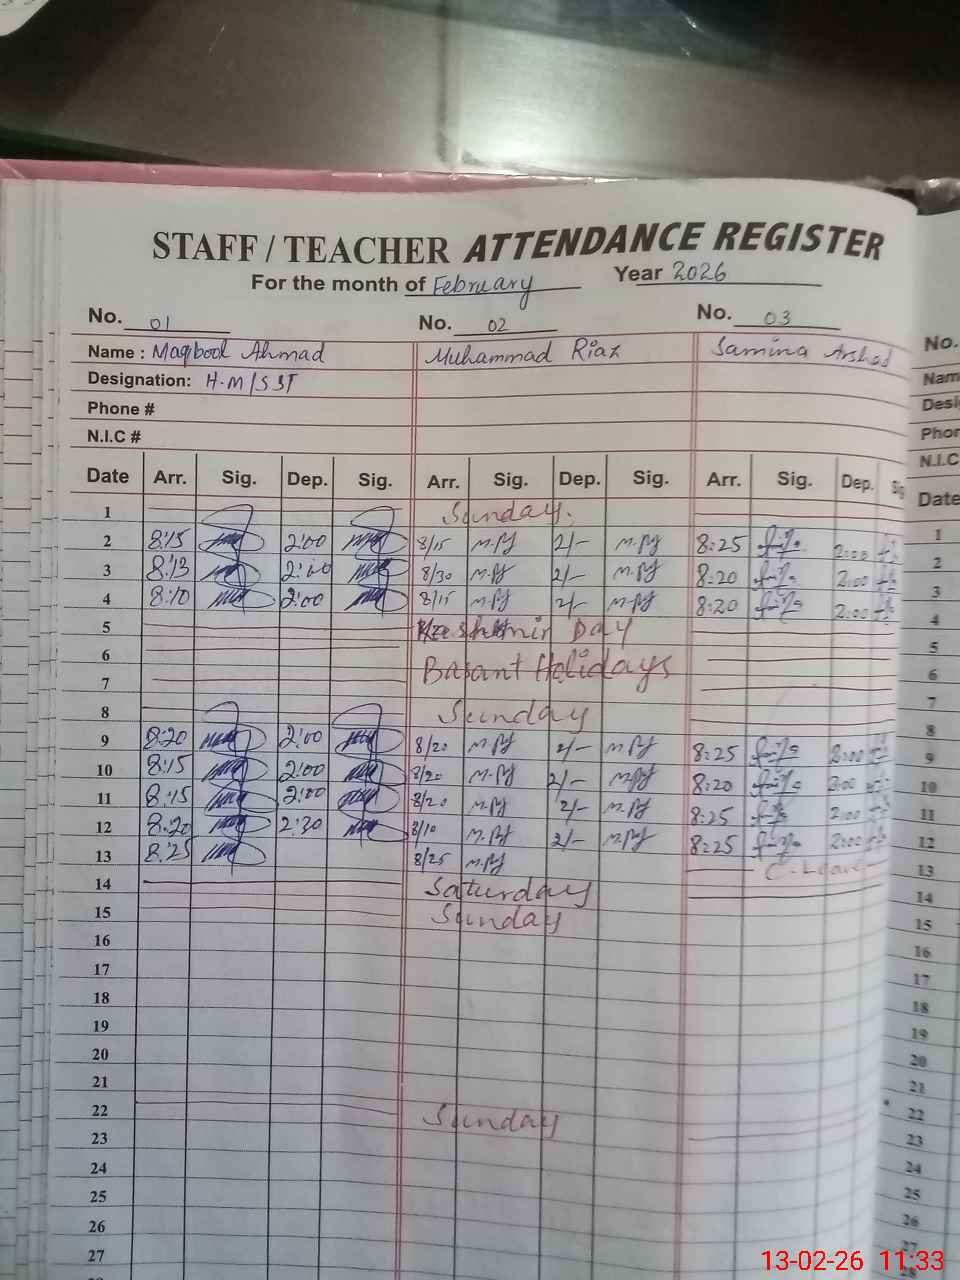 STAFF / TEACHER ATTENDANCE REGISTER
For the month of February Year 2026
No. 01 No. 02 No. 03
Name : Maqbool Ahmad Muhammad Riaz Samina Arshad
Designation: H.M/SST
Phone #
N.I.C #
Date Arr. Sig. Dep. Sig. Arr. Sig. Dep. Sig. Arr. Sig. Dep. Sig
1 Sunday.
2 8:15 2:00 8/15 2/- 8:25 2:00
3 8:13 2:00 8/30 2/- 8:20 2:00
4 8:10 2:00 8/15 2/- 8:20 2:00
5 Kashmir Day
6 Basant Holidays
7
8 Sunday
9 8:20 2:00 8/20 2/- 8:25 2:00
10 8:15 2:00 8/20 2/- 8:20 2:00
11 8:15 2:00 8/20 2/- 8:25 2:00
12 8:20 2:30 8/10 2/- 8:25 2:00
13 8:25 8/25 C-Leave
14 Saturday
15 Sunday
16
17
18
19
20
21
22 Sunday
23
24
25
26
27
No.
Nam
Desi
Phor
N.I.C
Date
1
2
3
4
5
6
7
8
9
10
11
12
13
14
15
16
17
18
19
20
21
22
23
24
25
26
27
28
13-02-26 11:33